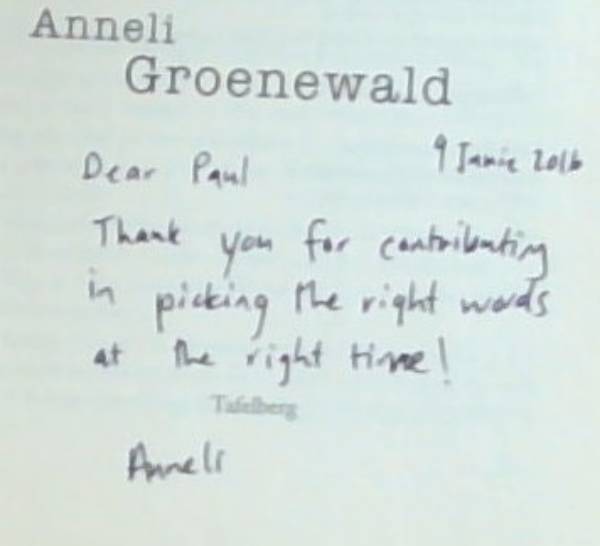 Anneli
Groenewald
9 Junie 2016
Dear Paul
Thank you for contributing
in picking the right words
at the right time!
Tafelberg
Anneli